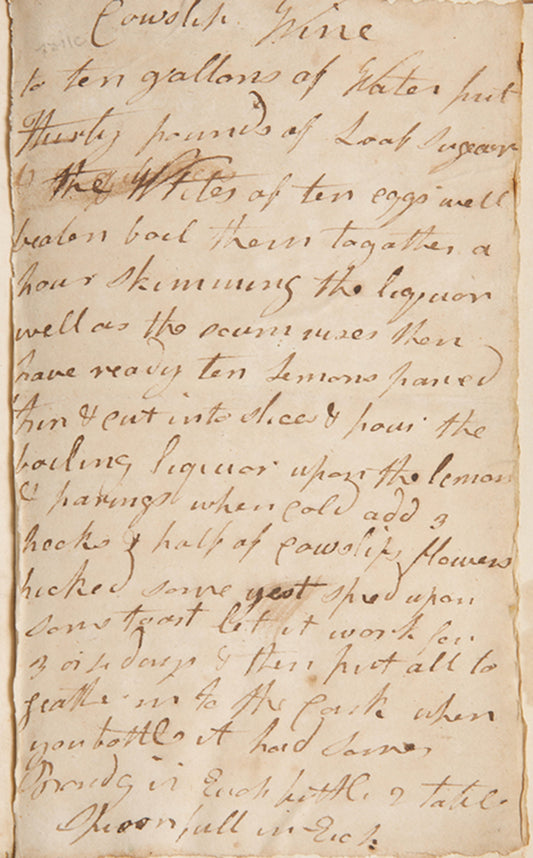 Cowslip Wine
to ten gallons of Water put
thirty pounds of Loaf Sugear
& the Whites of ten eggs well
beaten boil them togather a
hour skimming the liquor
well as the scum rises then
have ready ten Lemons pared
thin & cut into slices & pour the
boiling liquor upon the lemon
& parings when cold add 3
pecks & half of cowslip flowers
picked some yest spred upon
some toast let it work for
3 or days & then put all to
geather in to the cask when
you bottle it had some
Brandy in Each bottle 2 table
Spoon full in Each